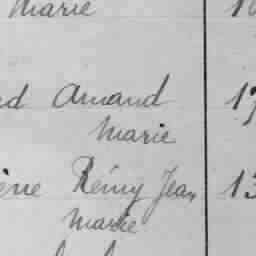 Marie
Armand 17
Marie
Rémy Jean 13
Marie